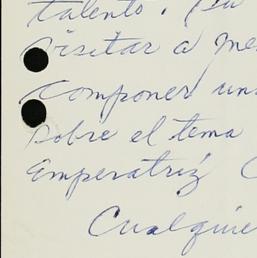 talento.
visitar a me
componer un
sobre el tema
Emperatriz C
Cualquie